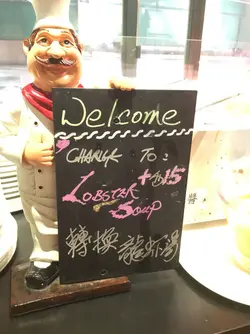 Welcome
CHANGE TO:
+$15
LOBSTER
SOUP
轉換龍虾湯